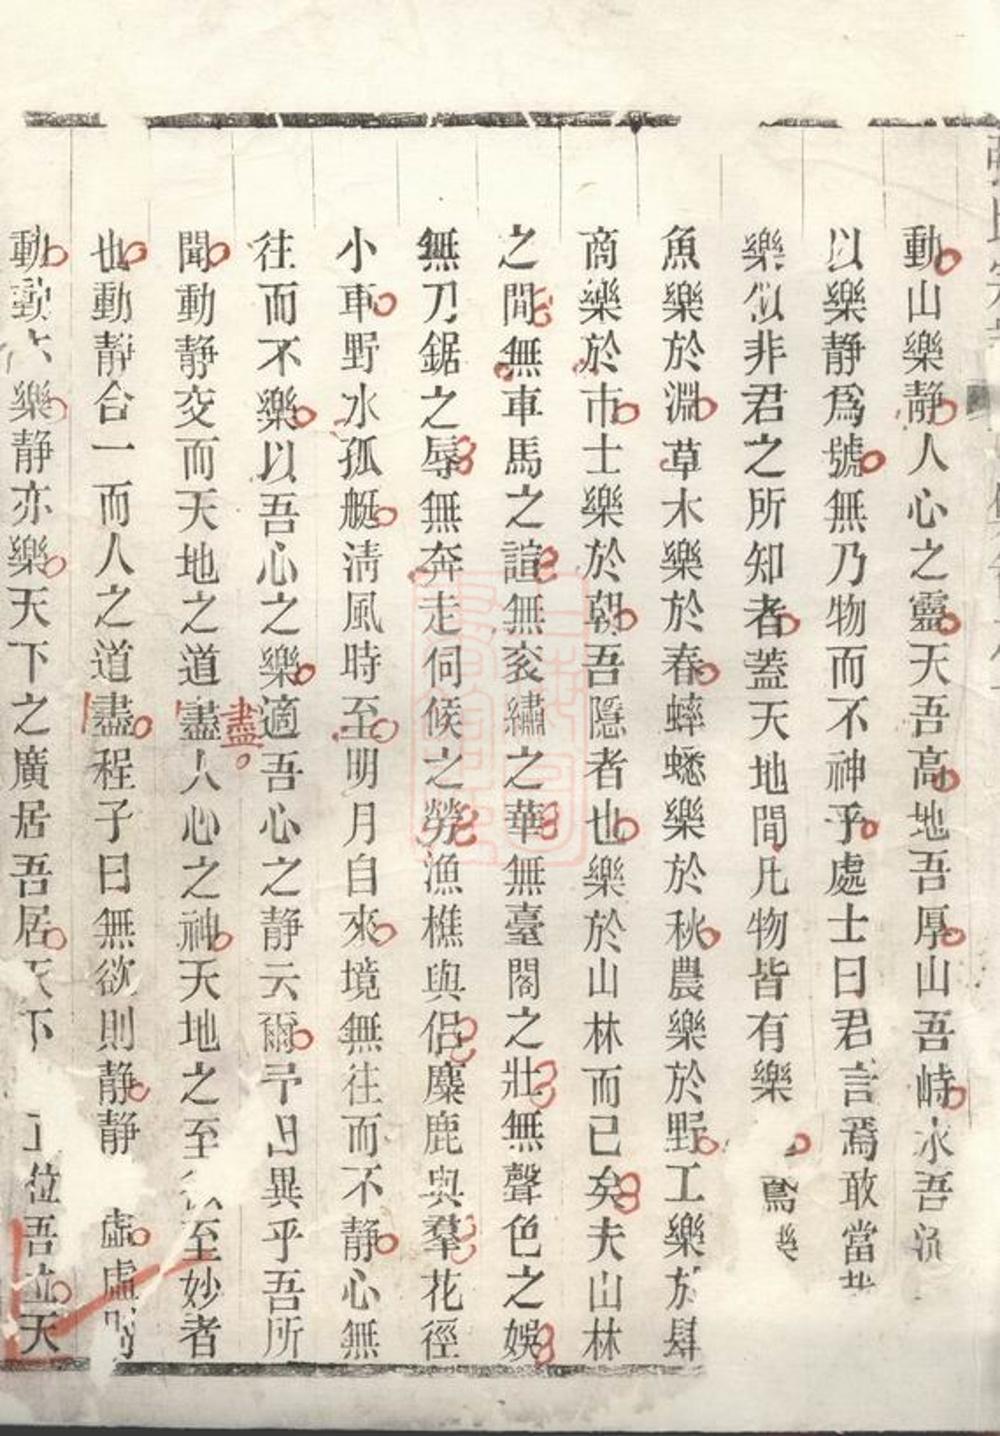 動山樂靜人心之靈天吾高地吾厚山吾峙水吾流
以樂靜爲號無乃物而不神乎處士曰君言焉敢當
樂似非君之所知者蓋天地間凡物皆有樂鳶樂
魚樂於淵草木樂於春蟀蟋樂於秋農樂於野工樂於肆
商樂於市士樂於朝吾隱者也樂於山林而已矣夫山林
之間無車馬之諠無衮繡之華無臺閣之壯無聲色之娛
無刀鋸之辱無奔走伺候之勞漁樵與侶麋鹿與羣花徑
小車野水孤艇淸風時至明月自來境無往而不靜心無
往而不樂以吾心之樂適吾心之靜云爾予曰異乎吾所
聞動靜交而天地之道盡人心之神天地之至至妙者
盡
也動靜合一而人之道盡程子曰無欲則靜靜虛虛
動動亦樂靜亦樂天下之廣居吾居天下正位吾立天